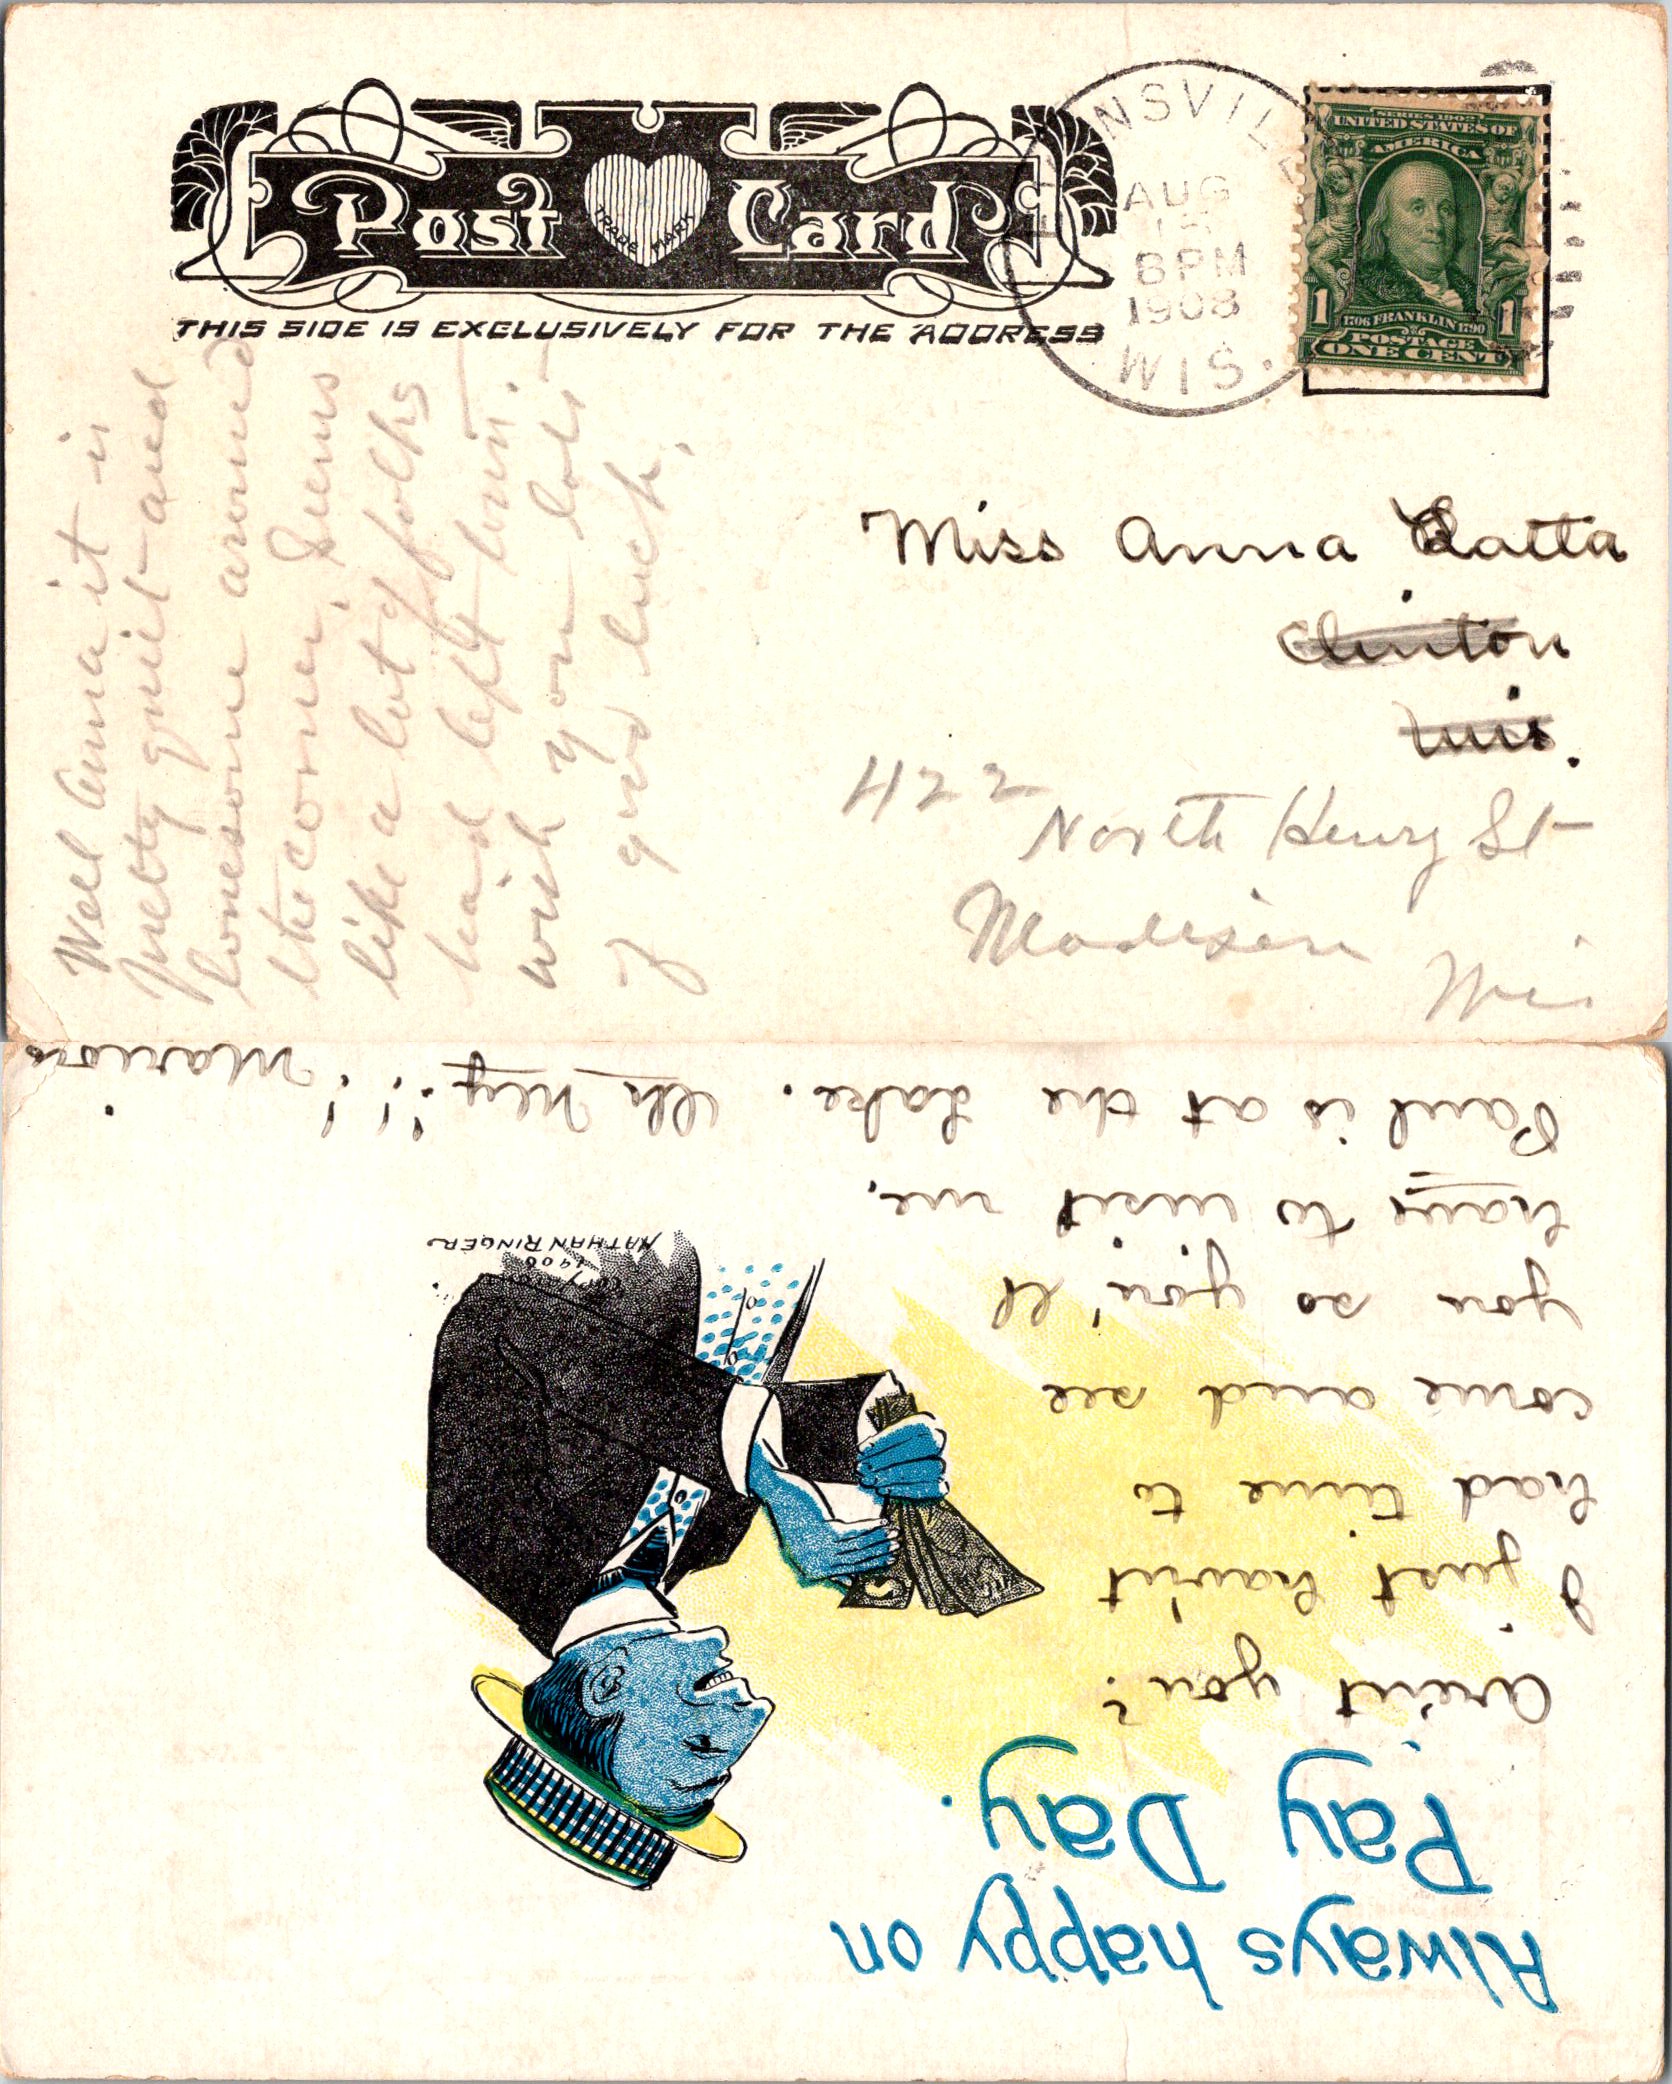 Post Card
TRADE MARK
THIS SIDE IS EXCLUSIVELY FOR THE ADDRESS
NSVILLE
AUG
8 PM
1908
WIS.
SERIES 1902
UNITED STATES OF
AMERICA
1 1
1706 FRANKLIN 1790
POSTAGE
ONE CENT
Miss Anna Latta
Clinton
Wis.
422
North Henry St
Madison
Wis
Well Anna it is
pretty quiet and
lonesome around
the corner, Seems
like a lot of folks
had left town.
wish you lots
of good luck.
Always happy on
Pay Day.
Aren't you?
I just haven't
had time to
come and see
you so you'll
have to visit me.
Paul is at the Lake. Oh My!!!! Marion
COPY
1906
NATHAN RINGER